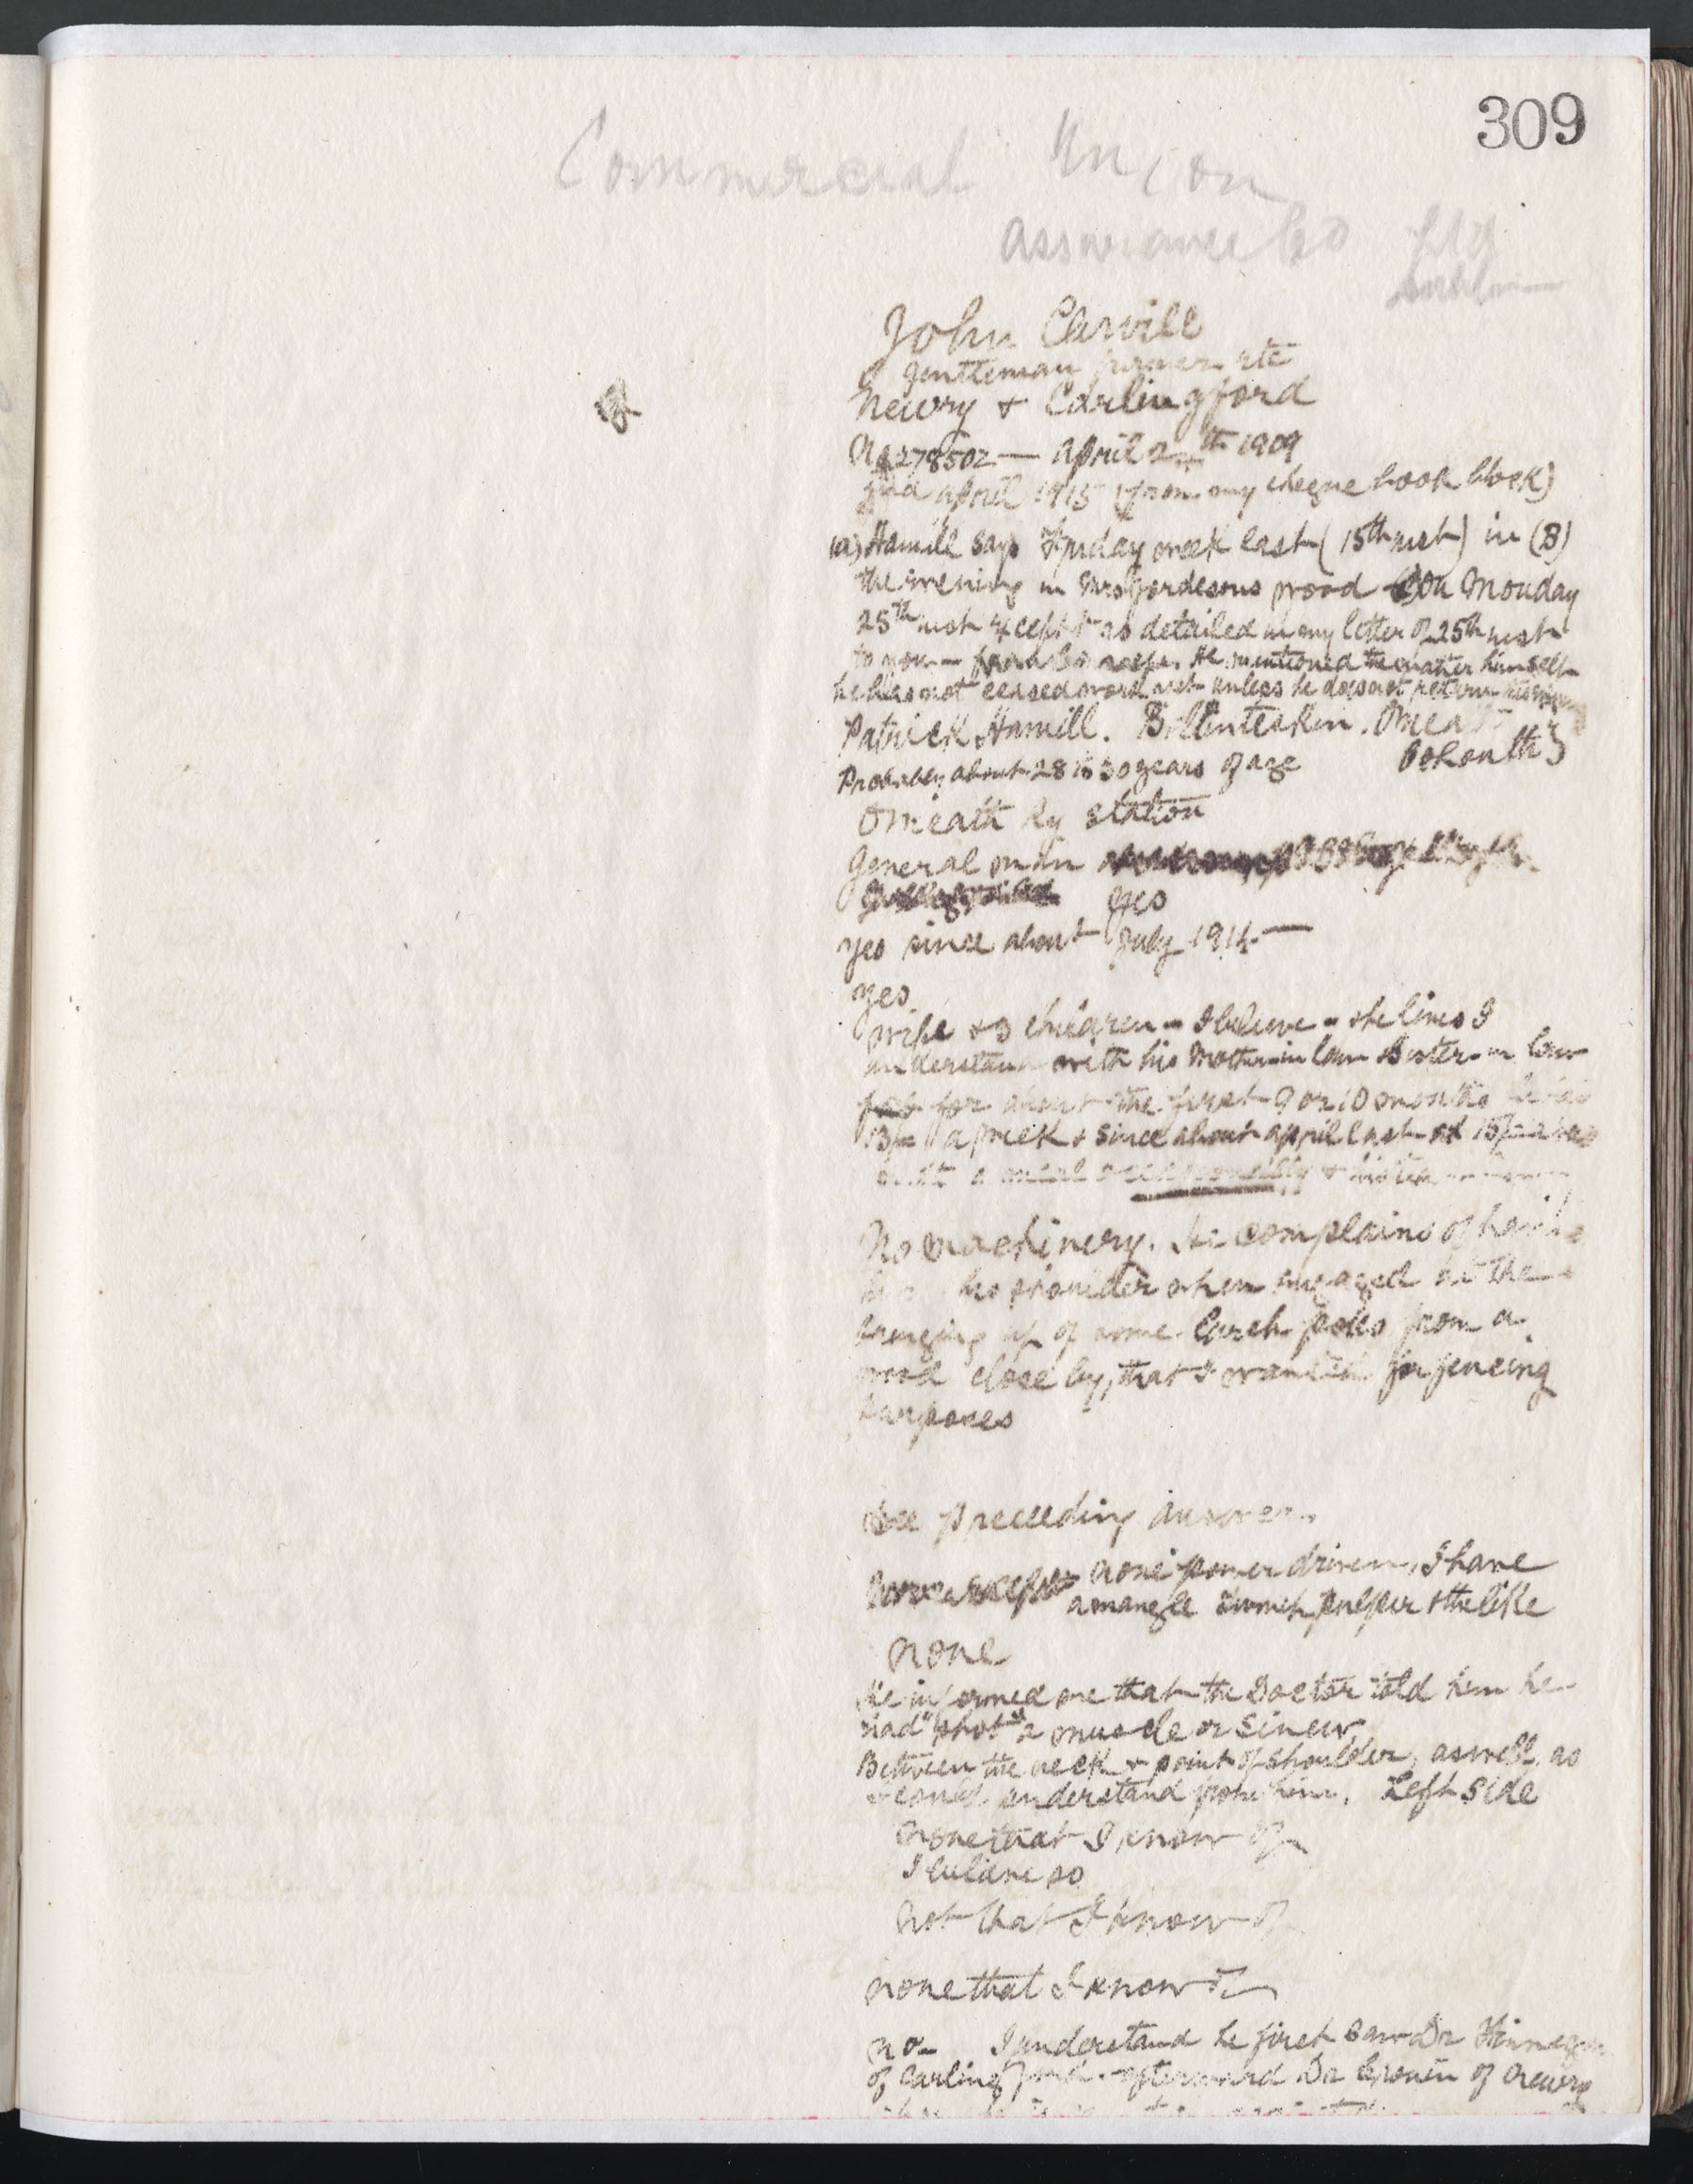 309
Commercial Union
Assurance Co Ltd
Dublin
John Carvill
Gentleman farmer etc
Newry & Carlingford
No 278502 — April 2 th 1909
paid April 1915 (from my cheque book block)
(a) Hamill says Friday week last (15th inst) in (B)
the evening in Mrs wood (B) On Monday
25th inst except as detailed in my letter of 25th inst
to you — He mentioned the matter himself
he has not ceased work yet unless he does not return
Patrick Hamill. Omeath
Co Louth
Probably about 28 to 30 years of age
Omeath Ry station
General man
yes
yes since about July 1914 —
yes.
wife & 3 children - I believe - she lives I
understand with his Mother in law & Sister in law
for about the first 9 or 10 months he had
13/= a week & since about April last at 15/=
a meal occasionally
No machinery. He complains of
his shoulder when engaged at the
bringing up of some larch poles from a
wood close by, that I wanted for fencing
purposes
See preceeding answer.
None except none power driven, I have
a mangle turnip pulper & the like
None
He informed me that the Doctor told him he
had "shot" a muscle or sinew
Between the neck & point of shoulder, as well as
I could understand from him. Left side
None that I know of
I believe so
Not that I know of
none that I know of
no - I understand he first saw Dr Finnegan
of Carlingford. afterward Dr of Newry